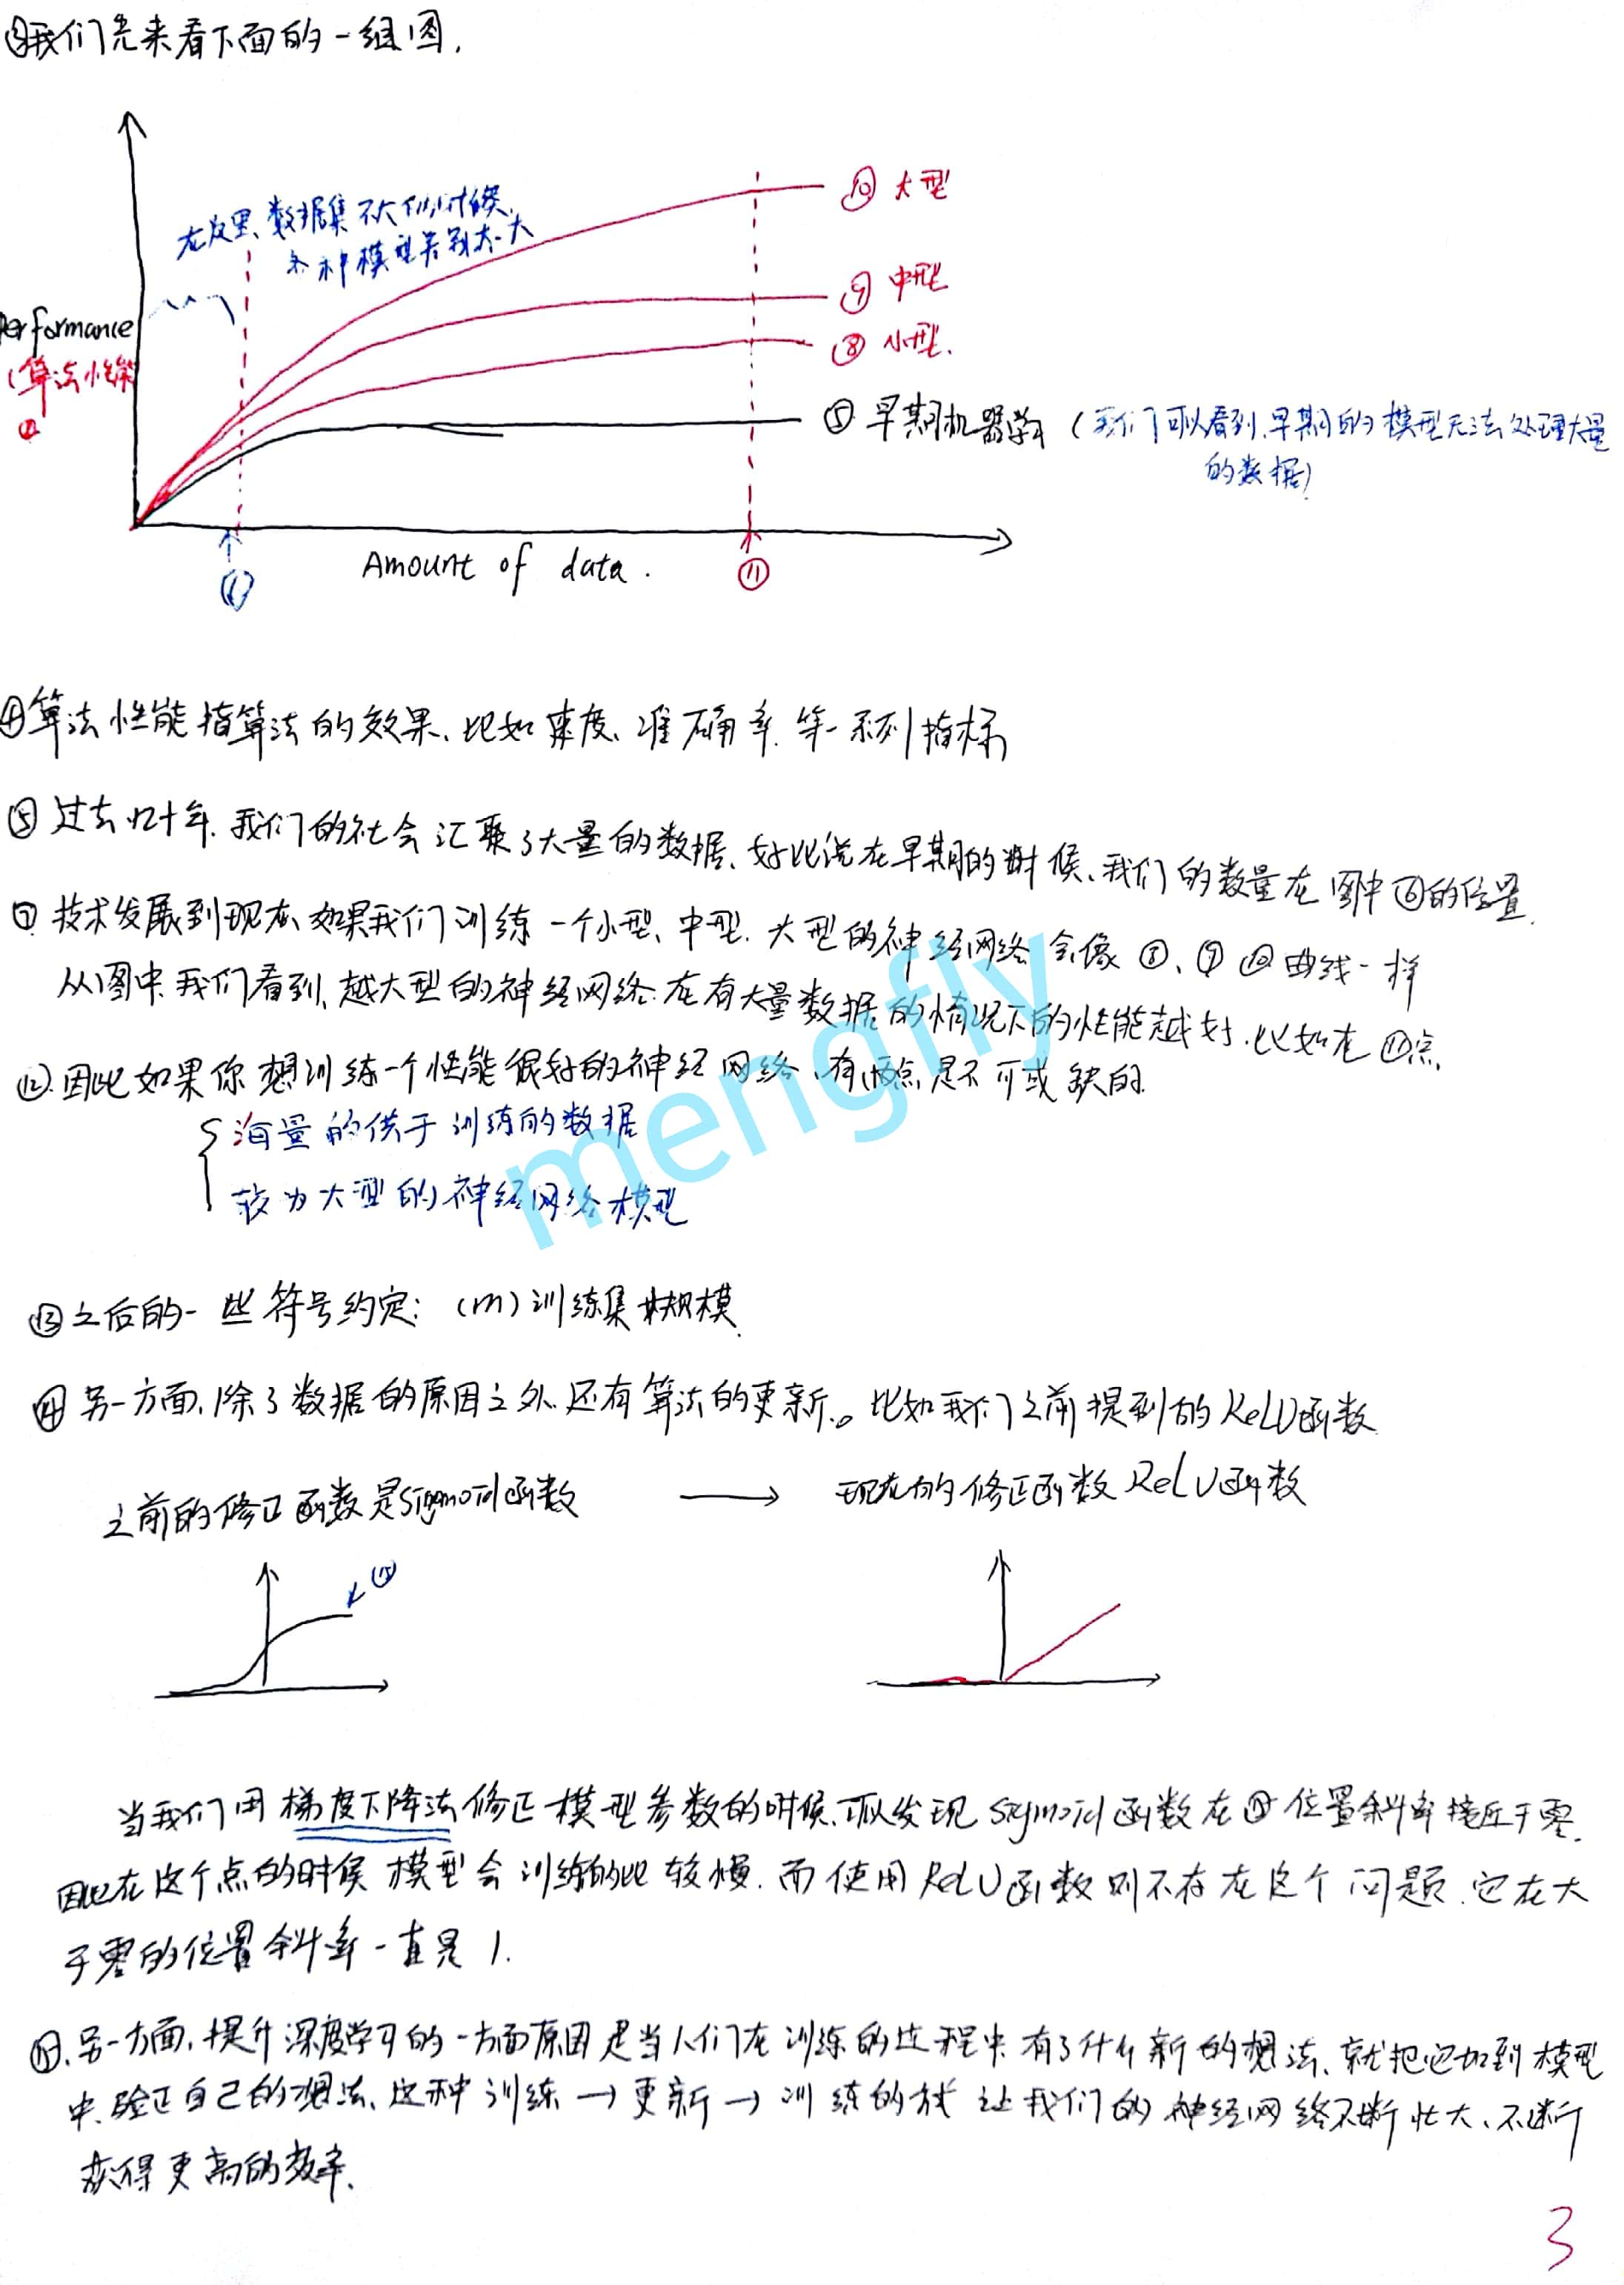 ③我们先来看下面的一组图.
在这里,数据集不大的时候,
各种模型差别不大
Performance
(算法性能
④
⑩ 大型
⑨ 中型
⑧ 小型.
⑤ 早期机器学习 (我们可以看到,早期的模型无法处理大量
的数据)
⑥
Amount of data.
⑪
④算法性能指算法的效果、比如速度、准确率.等一系列指标
⑤过去几十年.我们的社会汇聚了大量的数据、好比说在早期的时候、我们的数量在图中⑥的位置.
⑦.技术发展到现在,如果我们训练一个小型、中型.大型的神经网络会像⑧、⑨ ⑩曲线一样
从图中我们看到,越大型的神经网络.在有大量数据的情况下的性能越好.比如在⑪点.
⑫.因此如果你想训练一个性能很好的神经网络、有两点是不可或缺的.
海量的供于训练的数据
较为大型的神经网络模型
⑬之后的一些符号约定: (m)训练集规模.
⑭另一方面,除了数据的原因之外.还有算法的更新。比如我们之前提到的ReLU函数
之前的修正函数是sigmoid函数 → 现在的修正函数ReLU函数
⑮
当我们用梯度下降法修正模型参数的时候.可以发现sigmoid函数在⑮位置斜率接近于零.
因此在这个点的时候模型会训练的比较慢.而使用ReLU函数则不存在这个问题.它在大
于零的位置斜率一直是1.
另一方面,提升深度学习的一方面原因是当人们在训练的过程中有了什么新的想法、就把它加到模型
中.验证自己的想法、这种训练→更新→训练的 让我们的神经网络不断壮大、不断
获得更高的效率.
3
mengfly